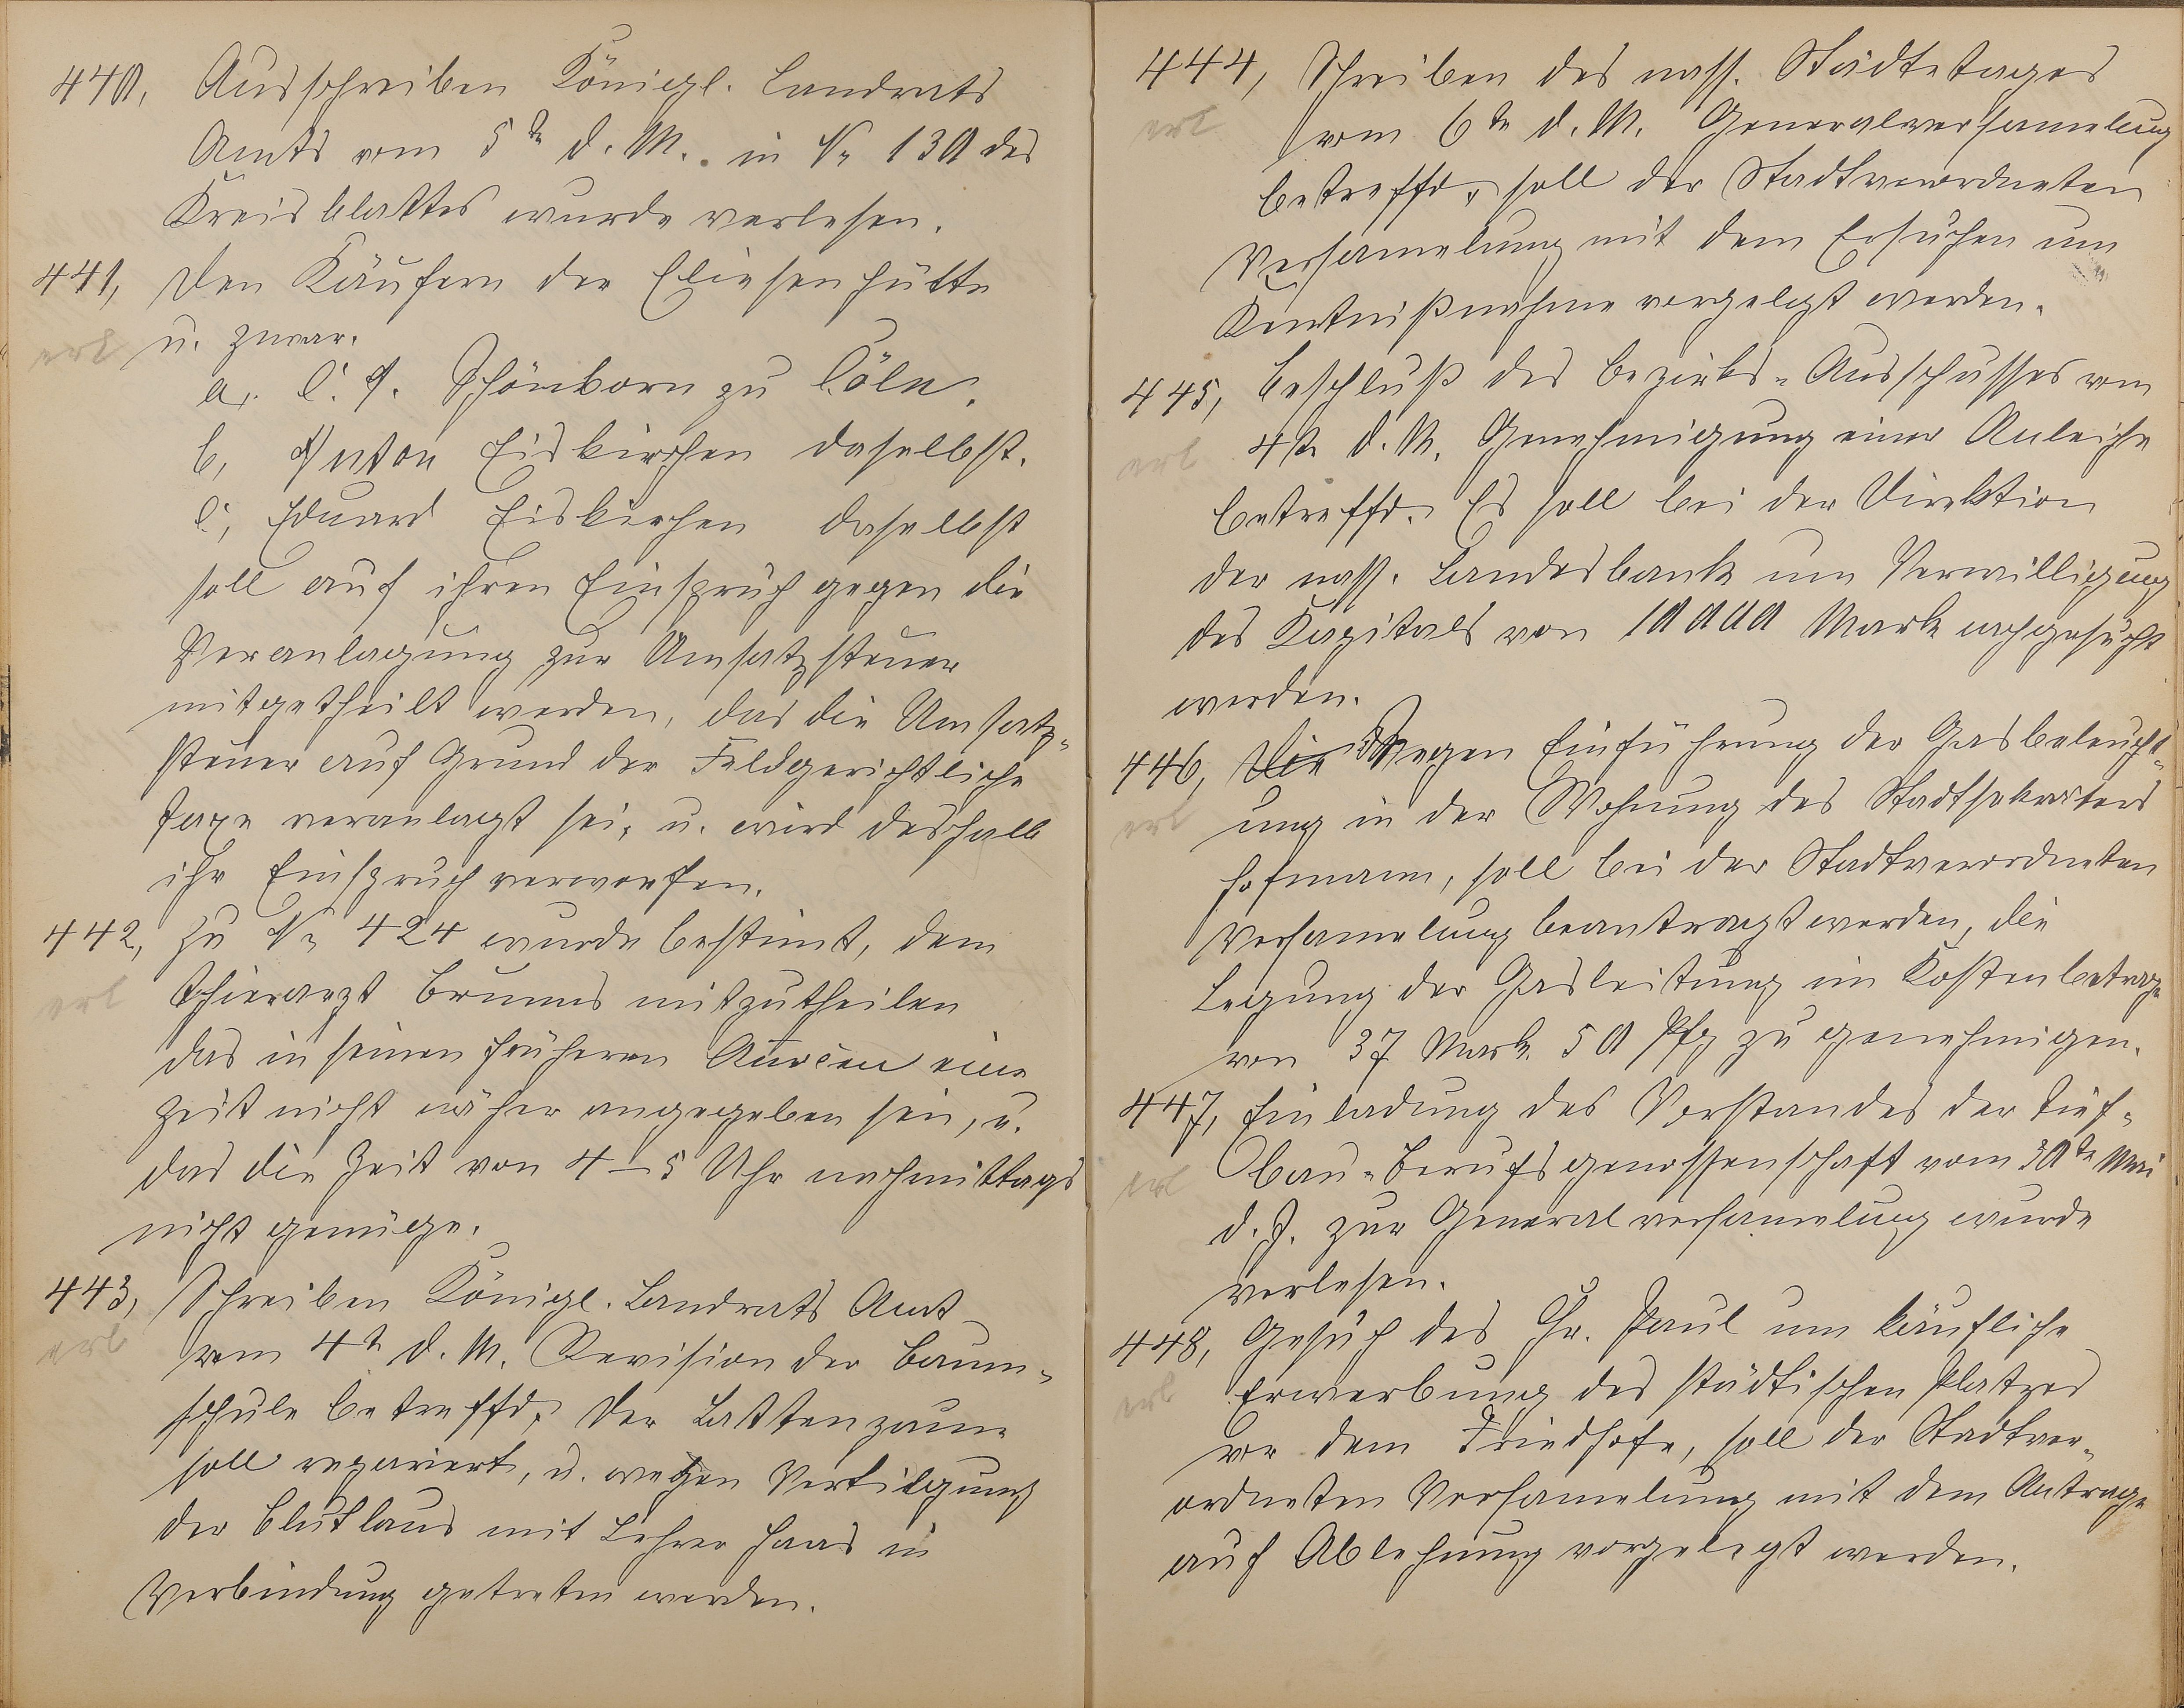 440, Ausschreiben Königl. Landrats
Amts vom 5te d. M. in No 130 des
Kreisblattes wurde verlesen.
441, Den Käufern der Eliesenhütte
erl u. zwar.
a. C. J. Schönborn zu Cöln.
b, Anton Eiskirchen daselbst.
c, Eduard Eiskirchen daselbst
soll auf ihren Einspruch gegen die
Veranlagung zur Umsatzsteuer
mitgetheilt werden, das die Umsatz-
steuer auf Grund der Feldgerichtliche
Taxe veranlagt sei, u. wird deshalb
ihr Einspruch verworfen.
442, Zu No 424 wurde bestimt, dem
erl Thierarzt Brumms mitzutheilen
das in seinen früheren eine
Zeit nicht näher angegeben sei, u.
das die Zeit von 4-5 Uhr nachmittags
nicht genüge.
443, Schreiben Königl. Landrats Amt
erl vom 4t d. M. Revision der Baum-
schule betreffd, der Lattenzaun
soll repariert, u. wegen Vertilgung
der Blutlaus mit Lehrer Haas in
Verbindung getreten werden.
444, Schreiben des nass. Städtetages
erl vom 6te d. M. Generalversamelung
betreffd, soll der Stadtverordneten
Versamelung mit dem Ersuchen um
Kentnißnahme vorgelegt werden.
445, Beschluß des Bezirks-Ausschusses vom
erl 4te d. M. Genehmigung einer Anleihe
betreffd. Es soll bei der Direktion
der nass. Landesbank um Verwilligung
des Kapitals von 10000 Mark nachgesucht
werden.
446, Die Wegen Einführung der Gasbeleucht-
erl ung in der Wohnung des Stadtsekretärs
Hofmann, soll bei der Stadtverordneten
Versamelung beantragt werden, die
Legung der Gasleitung im Kostenbetrage
von 37 Mark. 50 Pfg zu genehmigen.
447, Einladung des Vorstandes der Tief-
erl bau-Berufsgenossenschaft vom 30te Mai
d. J. zur Generalversamelung wurde
verlesen.
448, Gesuch des Chr. Paul um käufliche
erl Erwerbung des städtischen Platzes
vor dem Friedhofe, soll der Stadtver-
ordneten Versamelung mit dem Antrage
auf Ablehnung vorgelegt werden.